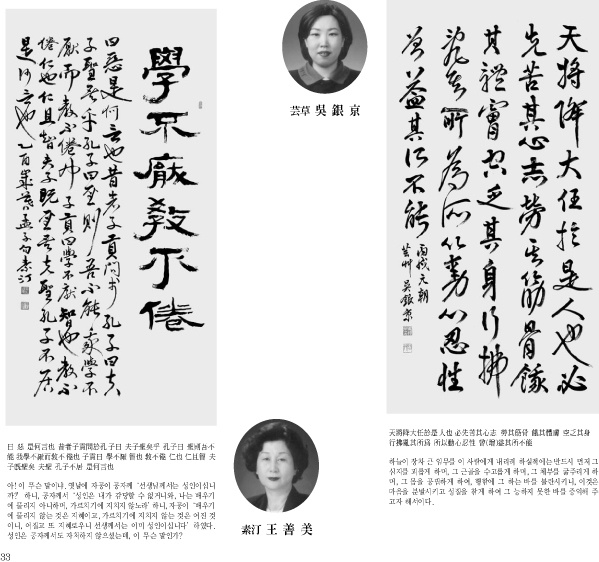 學不厭敎不倦
曰惡是何言也昔者子貢問於孔子曰夫
子聖矣乎孔子曰聖則吾不能我學不
厭而敎不倦也子貢曰學不厭智也敎不
倦仁也仁且智夫子旣聖矣夫聖孔子不居
是何言也 乙酉歲寒 孟子句 素汀
芸草 吳銀京
天將降大任於是人也必
先苦其心志勞其筋骨餓
其體膚空乏其身行拂
亂其所爲所以動心忍性
曾益其所不能
丙戌元朝
芸艸 吳銀京
曰 惡 是何言也 昔者子貢問於孔子曰 夫子聖矣乎 孔子曰 聖則吾不
能 我學不厭而敎不倦也 子貢曰 學不厭 智也 敎不倦 仁也 仁且智 夫
子旣聖矣 夫聖 孔子不居 是何言也
아! 이 무슨 말이냐. 옛날에 자공이 공자께 "선생님께서는 성인이십니
까?" 하니, 공자께서 "성인은 내가 감당할 수 없거니와, 나는 배우기
에 물리지 아니하며, 가르치기에 지치지 않노라' 하니, 자공이 "배우기
에 물리지 않는 것은 지혜이고, 가르치기에 지치지 않는 것은 어진 것
이니, 어질고 또 지혜로우니 선생께서는 이미 성인이십니다" 하였다.
성인은 공자께서도 자처하지 않으셨는데, 이 무슨 말인가?
素汀 王善美
天將降大任於是人也 必先苦其心志 勞其筋骨 餓其體膚 空乏其身
行拂亂其所爲 所以動心忍性 曾(增)益其所不能
하늘이 장차 큰 임무를 이 사람에게 내리려 하실적에는 반드시 먼저 그
심지를 괴롭게 하며, 그 근골을 수고롭게 하며, 그 체부를 굶주리게 하
며, 그 몸을 궁핍하게 하여, 행함에 그 하는 바를 불란시키나니, 이것은
마음을 분발시키고 성질을 참게 하여 그 능하지 못한 바를 증익해 주
고자 해서이다.
33